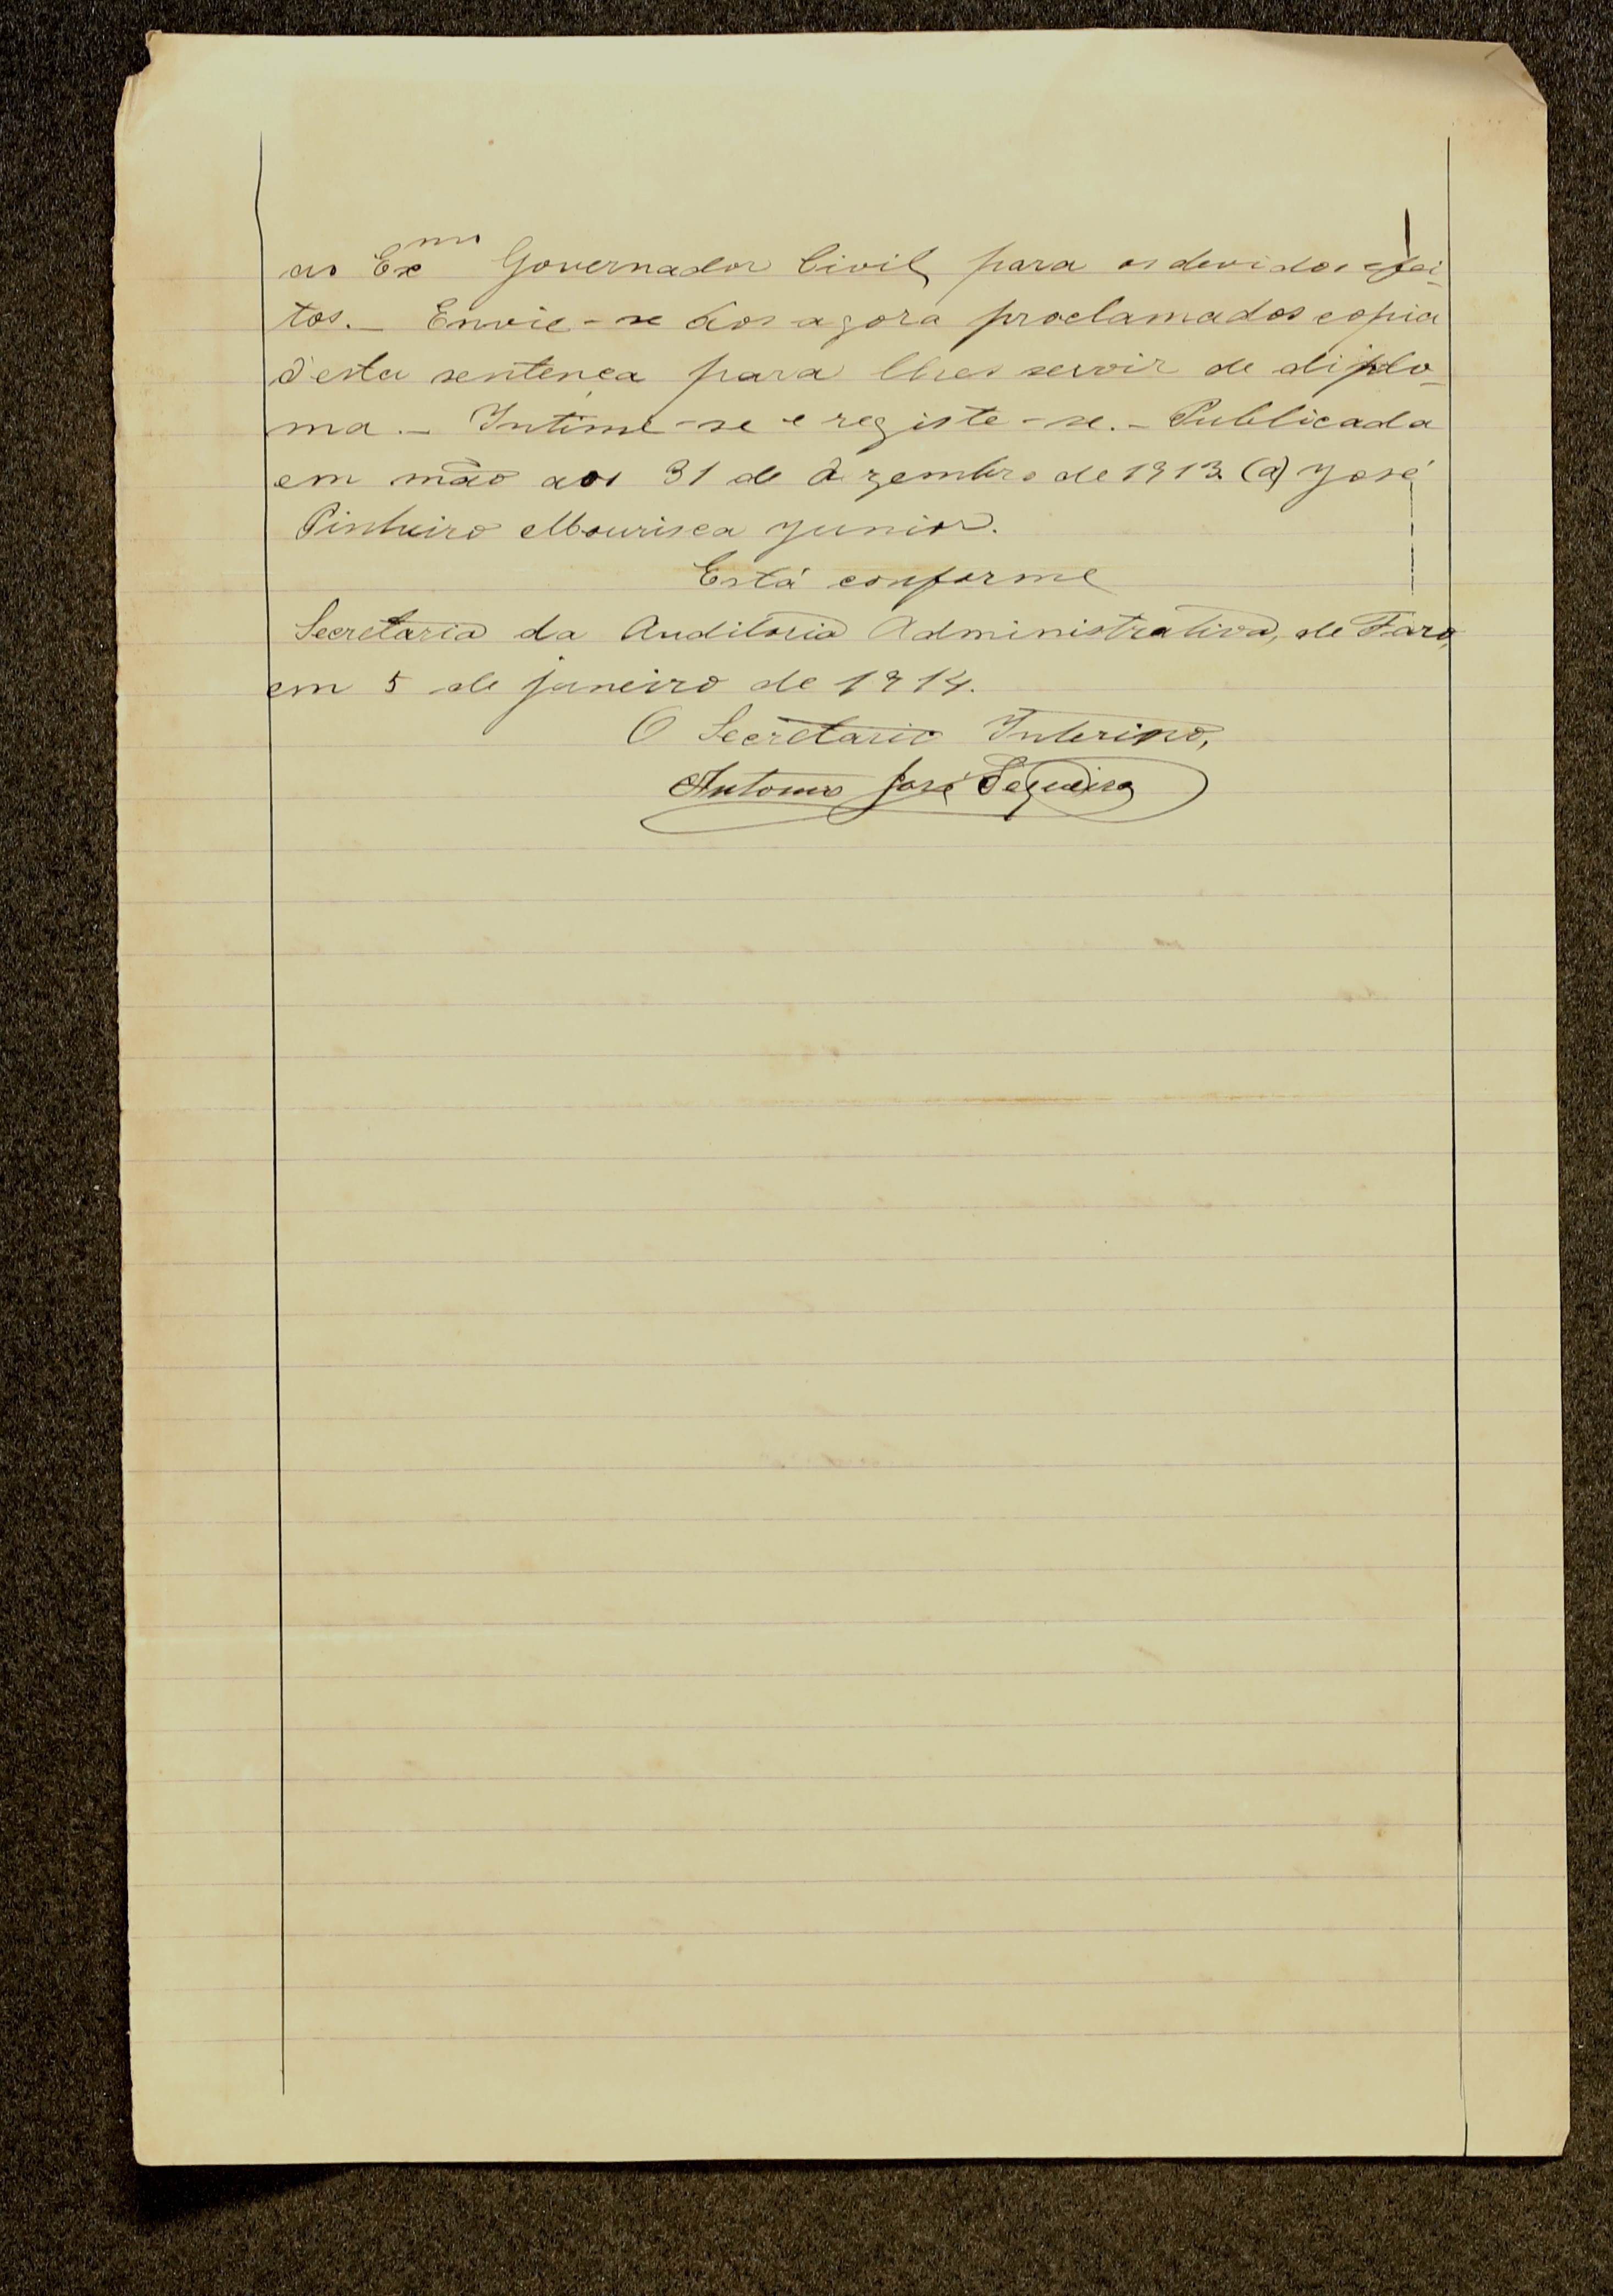 ao Exmo Governador Civil, para os devidos efei-
tos. — Envie-se aos agora proclamados copia
d'esta sentença para lhes servir de diplo-
ma. — Intime-se e registe-se. — Publicada
em mão aos 31 de Dezembro de 1913 (a) José
Pinheiro Mourisca Junior.
Está conforme
Secretaria da Auditoria Administrativa, de Faro,
em 5 de janeiro de 1914.
O Secretario Interino,
Antonio José Sequeira